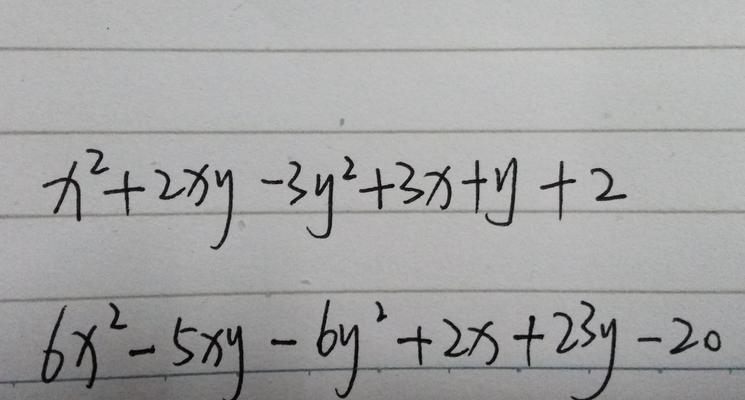 x²+2xy-3y²+3x+y+2
6x²-5xy-6y²+2x+23y-20